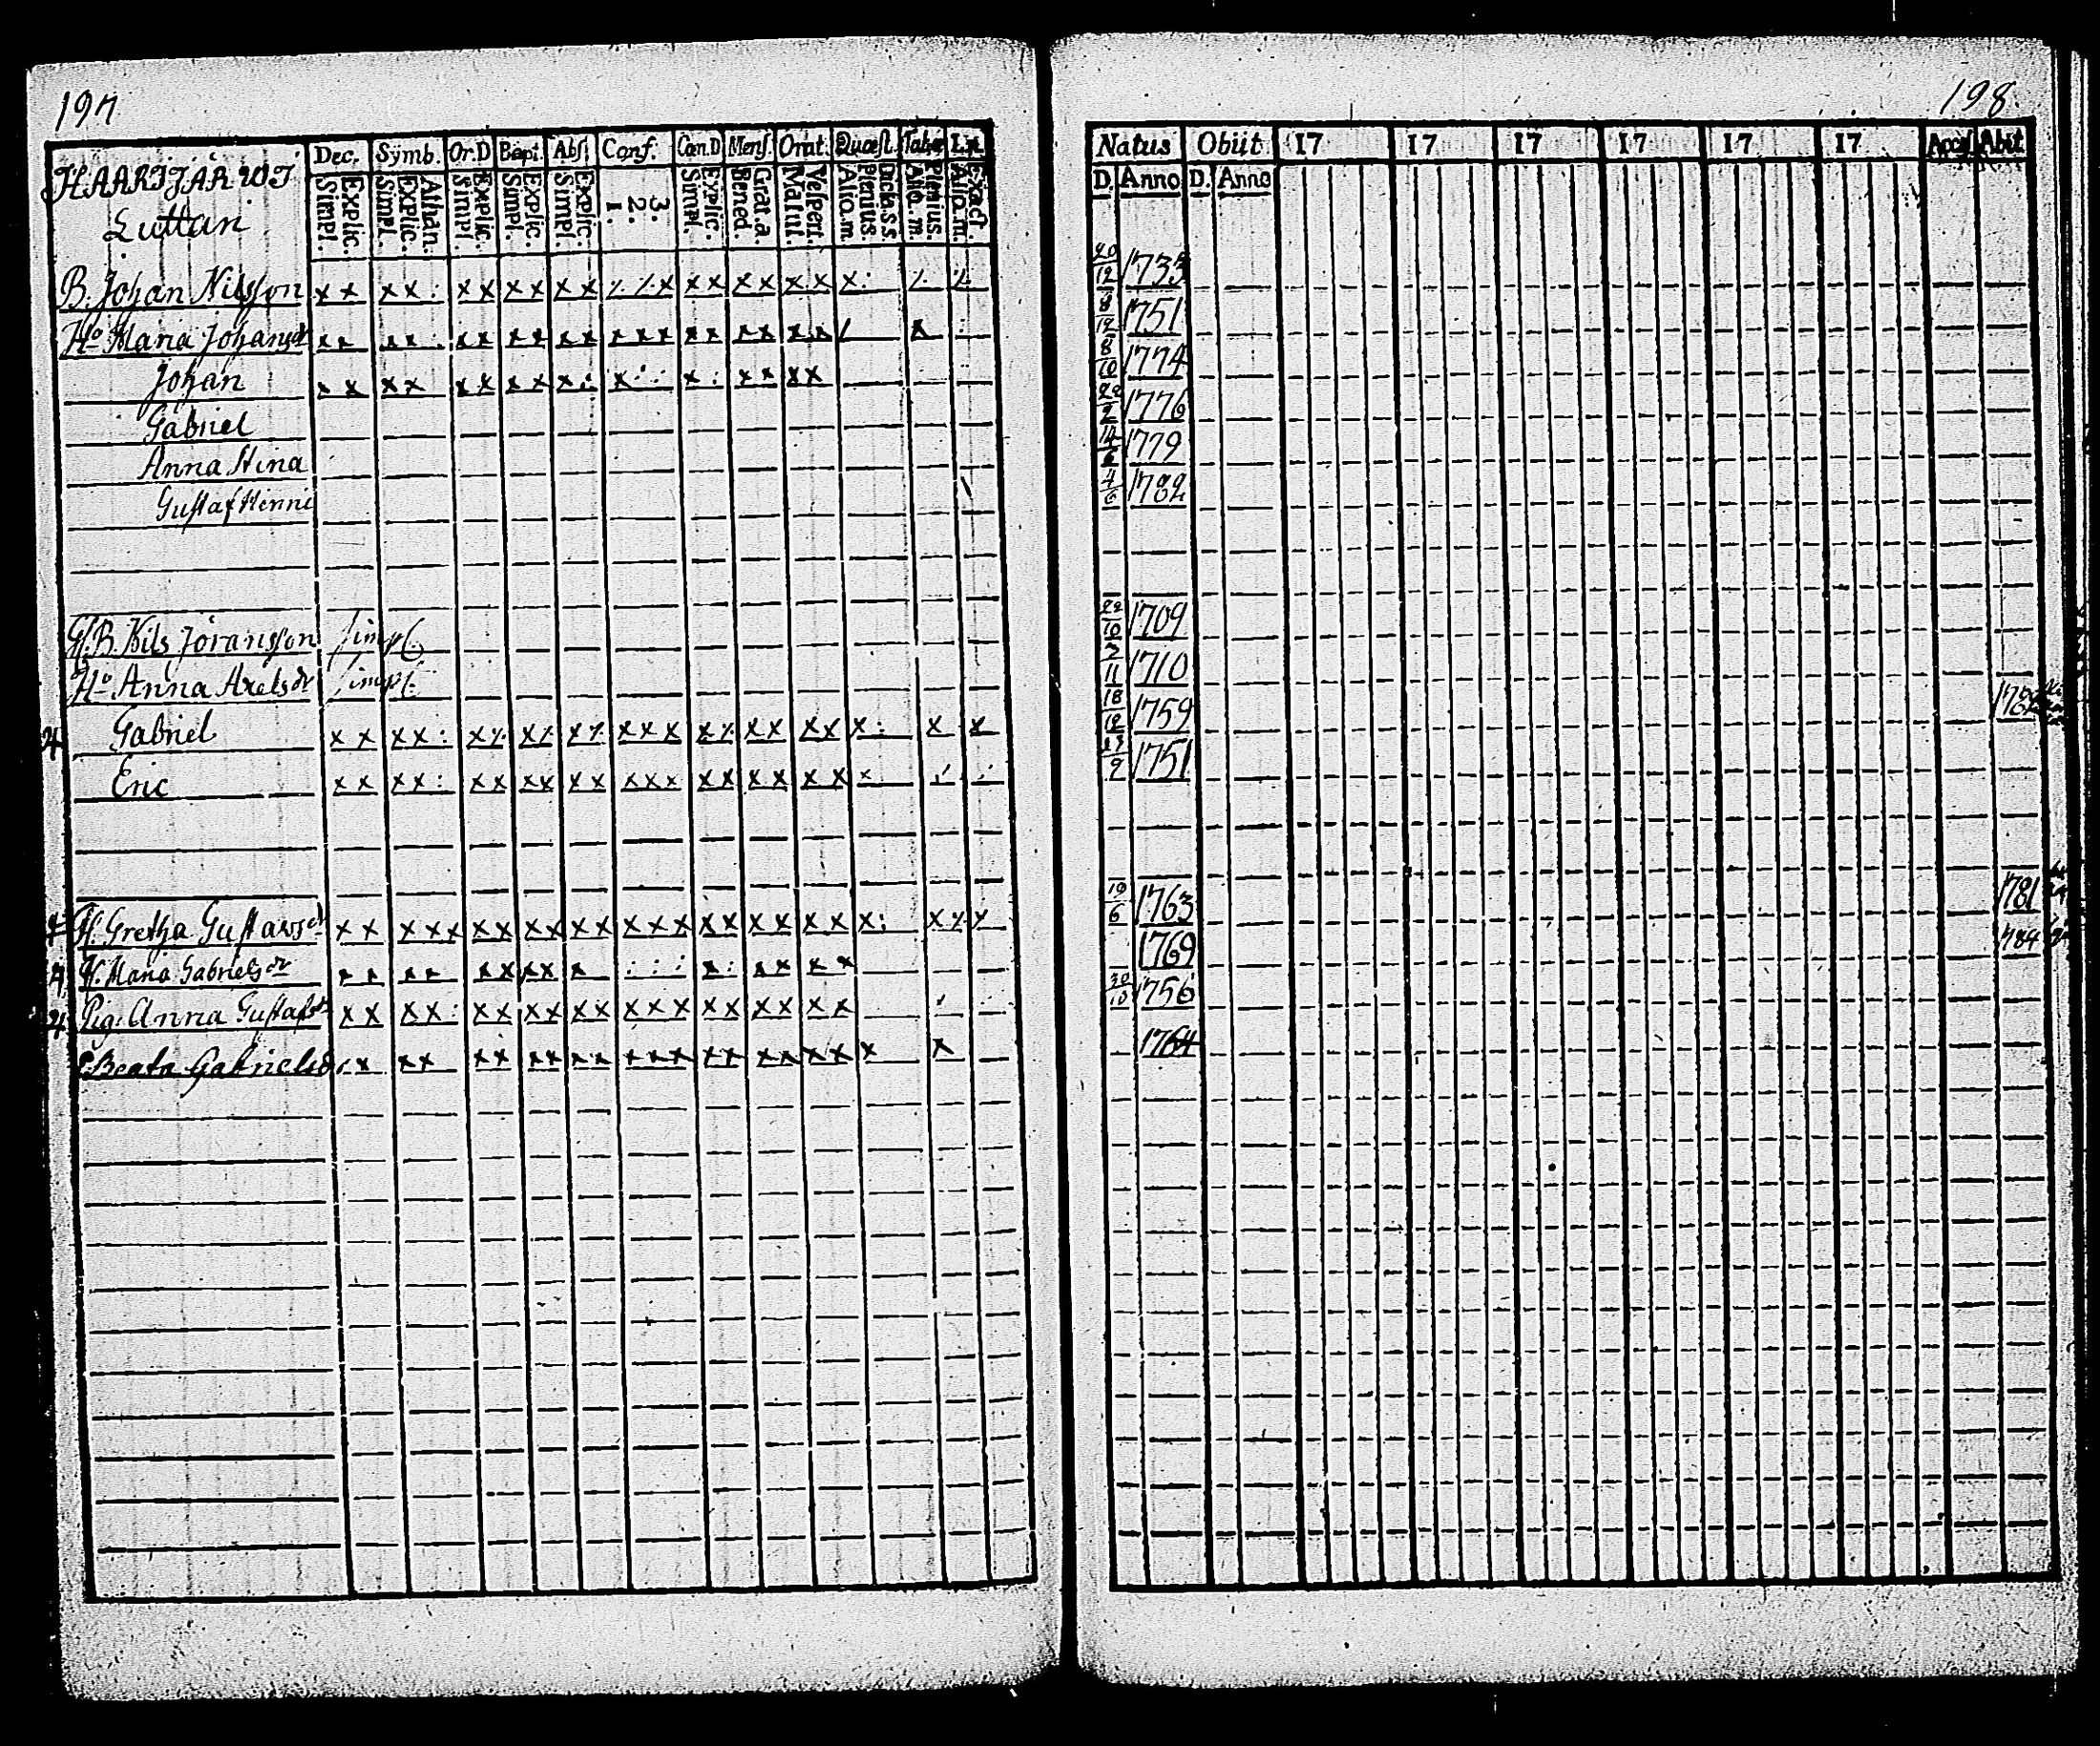 197
HAARIJÄRWI
Luttari
Dec. Symb. Or.D Bapt. Abs. Conf. Cœn.D Mens. Orat. Quæst. Tabu Lit.
Simpl. Explic. Simpl. Explic. Athan. Simpl. Explic. Simpl. Explic. Simpl. Explic. 1. 2. 3. Simpl. Explic. Bened. Grat. a. Matut. Vespert. Alio. m. Plenius. Dicta s. s. Alio. m. Plenius. Alio. m. Exact.
B. Johan Nilsson x x x x : x x x x x x x x x x x x x x x :
Ho Maria Johansdr x x x x : x x x x x x x x x x x x x x x x x
Johan x x x x x x x x x : x : : x : x x x x
Gabriel
Anna Stina
Gustaf Henric
G. B. Nils Jöransson simpl.
Ho. Anna Axelsdr simpl.
Gabriel x x x x : x x x x x x x x x x x x x x x : x x
Eric x x x x : x x x x x x x x x x x x x x x x
H. Gretha Gustavsdr x x x x x x x x x x x x x x x x x x x x x :
H. Maria Gabrielsdr x x x x x x x x x : : : x : x x x x
Pig. Anna Gustafsdr x x x x : x x x x x x x x x x x x x x x
P. Beata Gabrielsdr x x x x x x x x x x x x x x x x x x x x x
198
Natus Obiit 17 17 17 17 17 17 Access Abit
D. Anno D. Anno
20/12 1733
8/12 1751
8/10 1774
22/2 1776
14/6 1779
4/6 1782
22/10 1709
2/11 1710
18/12 1759
9 1751
19/6 1763 1781
1769 784
30/10 1756
1764